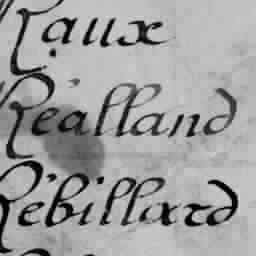 Raux
Réalland
Rébillard